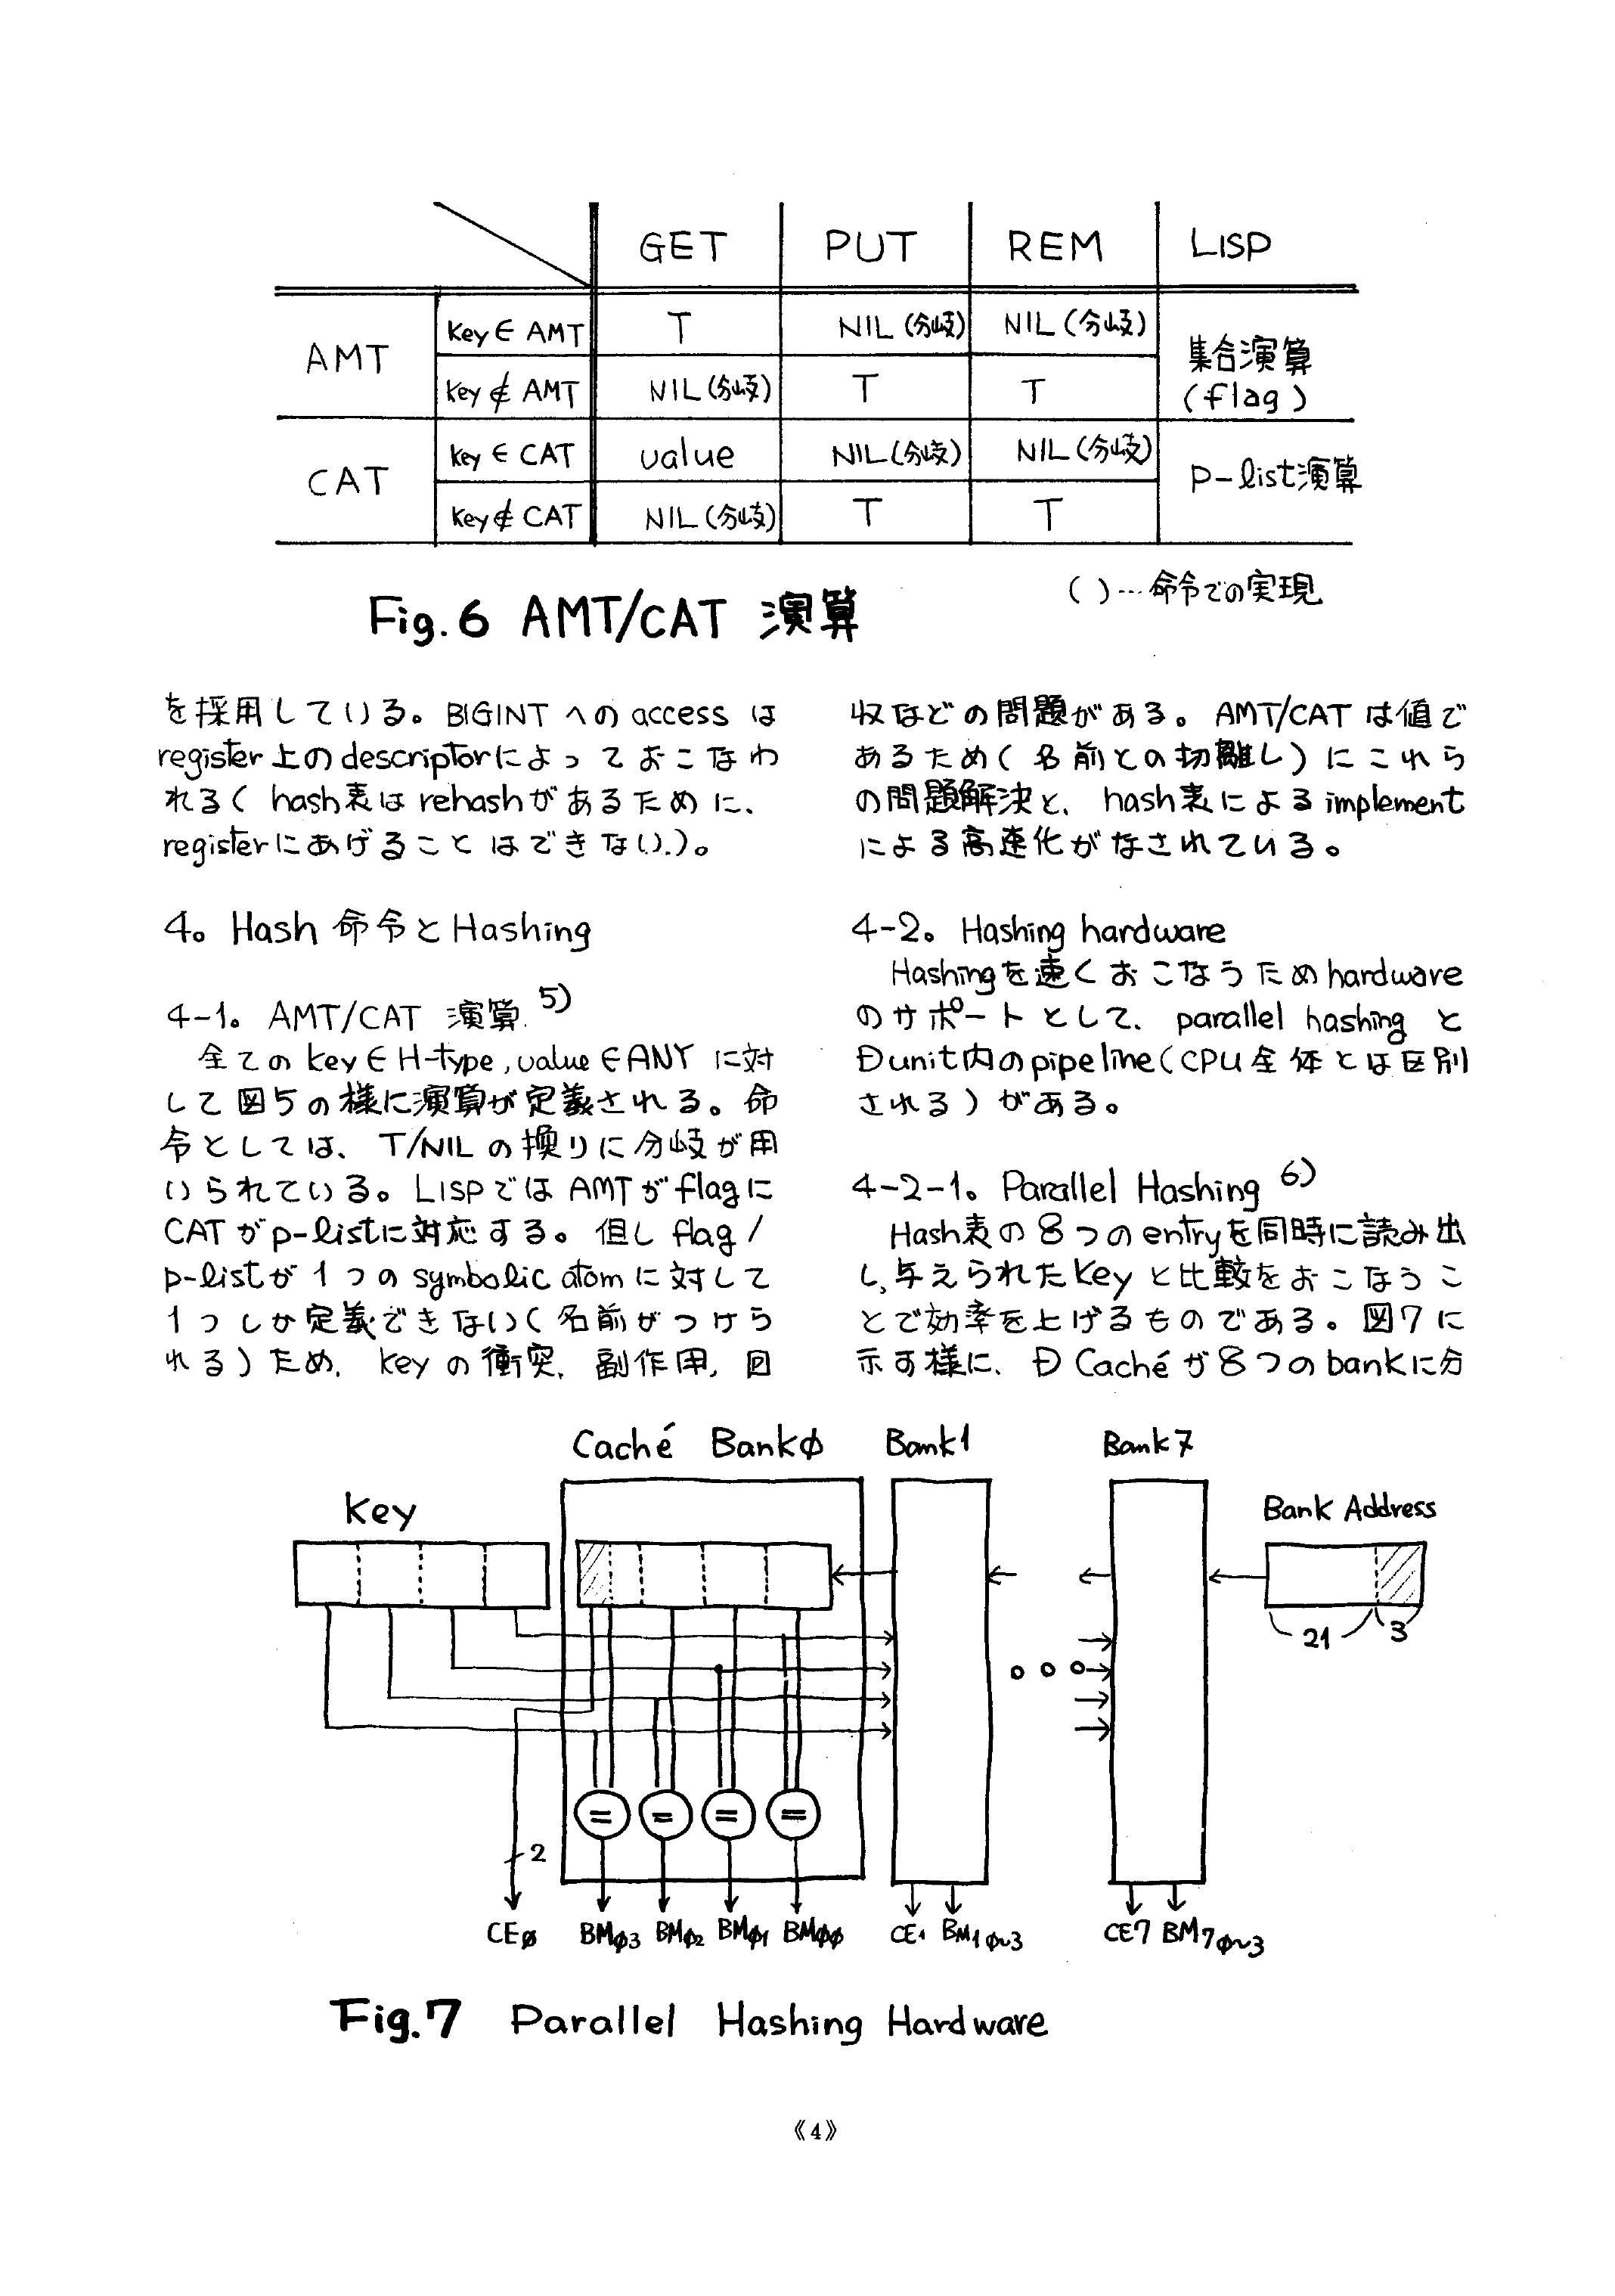 GET PUT REM LISP
AMT key∈AMT T NIL(分岐) NIL(分岐) 集合演算
key∉AMT NIL(分岐) T T (flag)
CAT key∈CAT value NIL(分岐) NIL(分岐) p-list演算
key∉CAT NIL(分岐) T T
( )…命令での実現
Fig.6 AMT/CAT 演算
を採用している。BIGINTへのaccessは
register上のdescriptorによっておこなわ
れる(hash表はrehashがあるために、
registerにあげることはできない.)。
4。Hash命令とHashing
4-1。AMT/CAT 演算 5)
全てのkey∈H-type,value∈ANYに対
して図5の様に演算が定義される。命
令としては、T/NILの換りに分岐が用
いられている。LISPではAMTがflagに
CATがp-listに対応する。但しflag/
p-listが1つのsymbolic atomに対して
1つしか定義できない(名前がつけら
れる)ため,keyの衝突,副作用,回
収などの問題がある。AMT/CATは値で
あるため(名前との切離し)にこれら
の問題解決と、hash表によるimplement
による高速化がなされている。
4-2。Hashing hardware
Hashingを速くおこなうためhardware
のサポートとして、parallel hashingと
Ðunit内のpipeline(CPU全体とは区別
される)がある。
4-2-1。Parallel Hashing 6)
Hash表の8つのentryを同時に読み出
し,与えられたkeyと比較をおこなうこ
とで効率を上げるものである。図7に
示す様に、Ð Cachéが8つのbankに分
Caché Bankφ Bank1 Bank7
Key Bank Address
21 3
= = = =
2
CEφ BMφ3 BMφ2 BMφ1 BMφφ CE1 BM1φ~3 CE7 BM7φ~3
Fig.7 Parallel Hashing Hardware
《4》